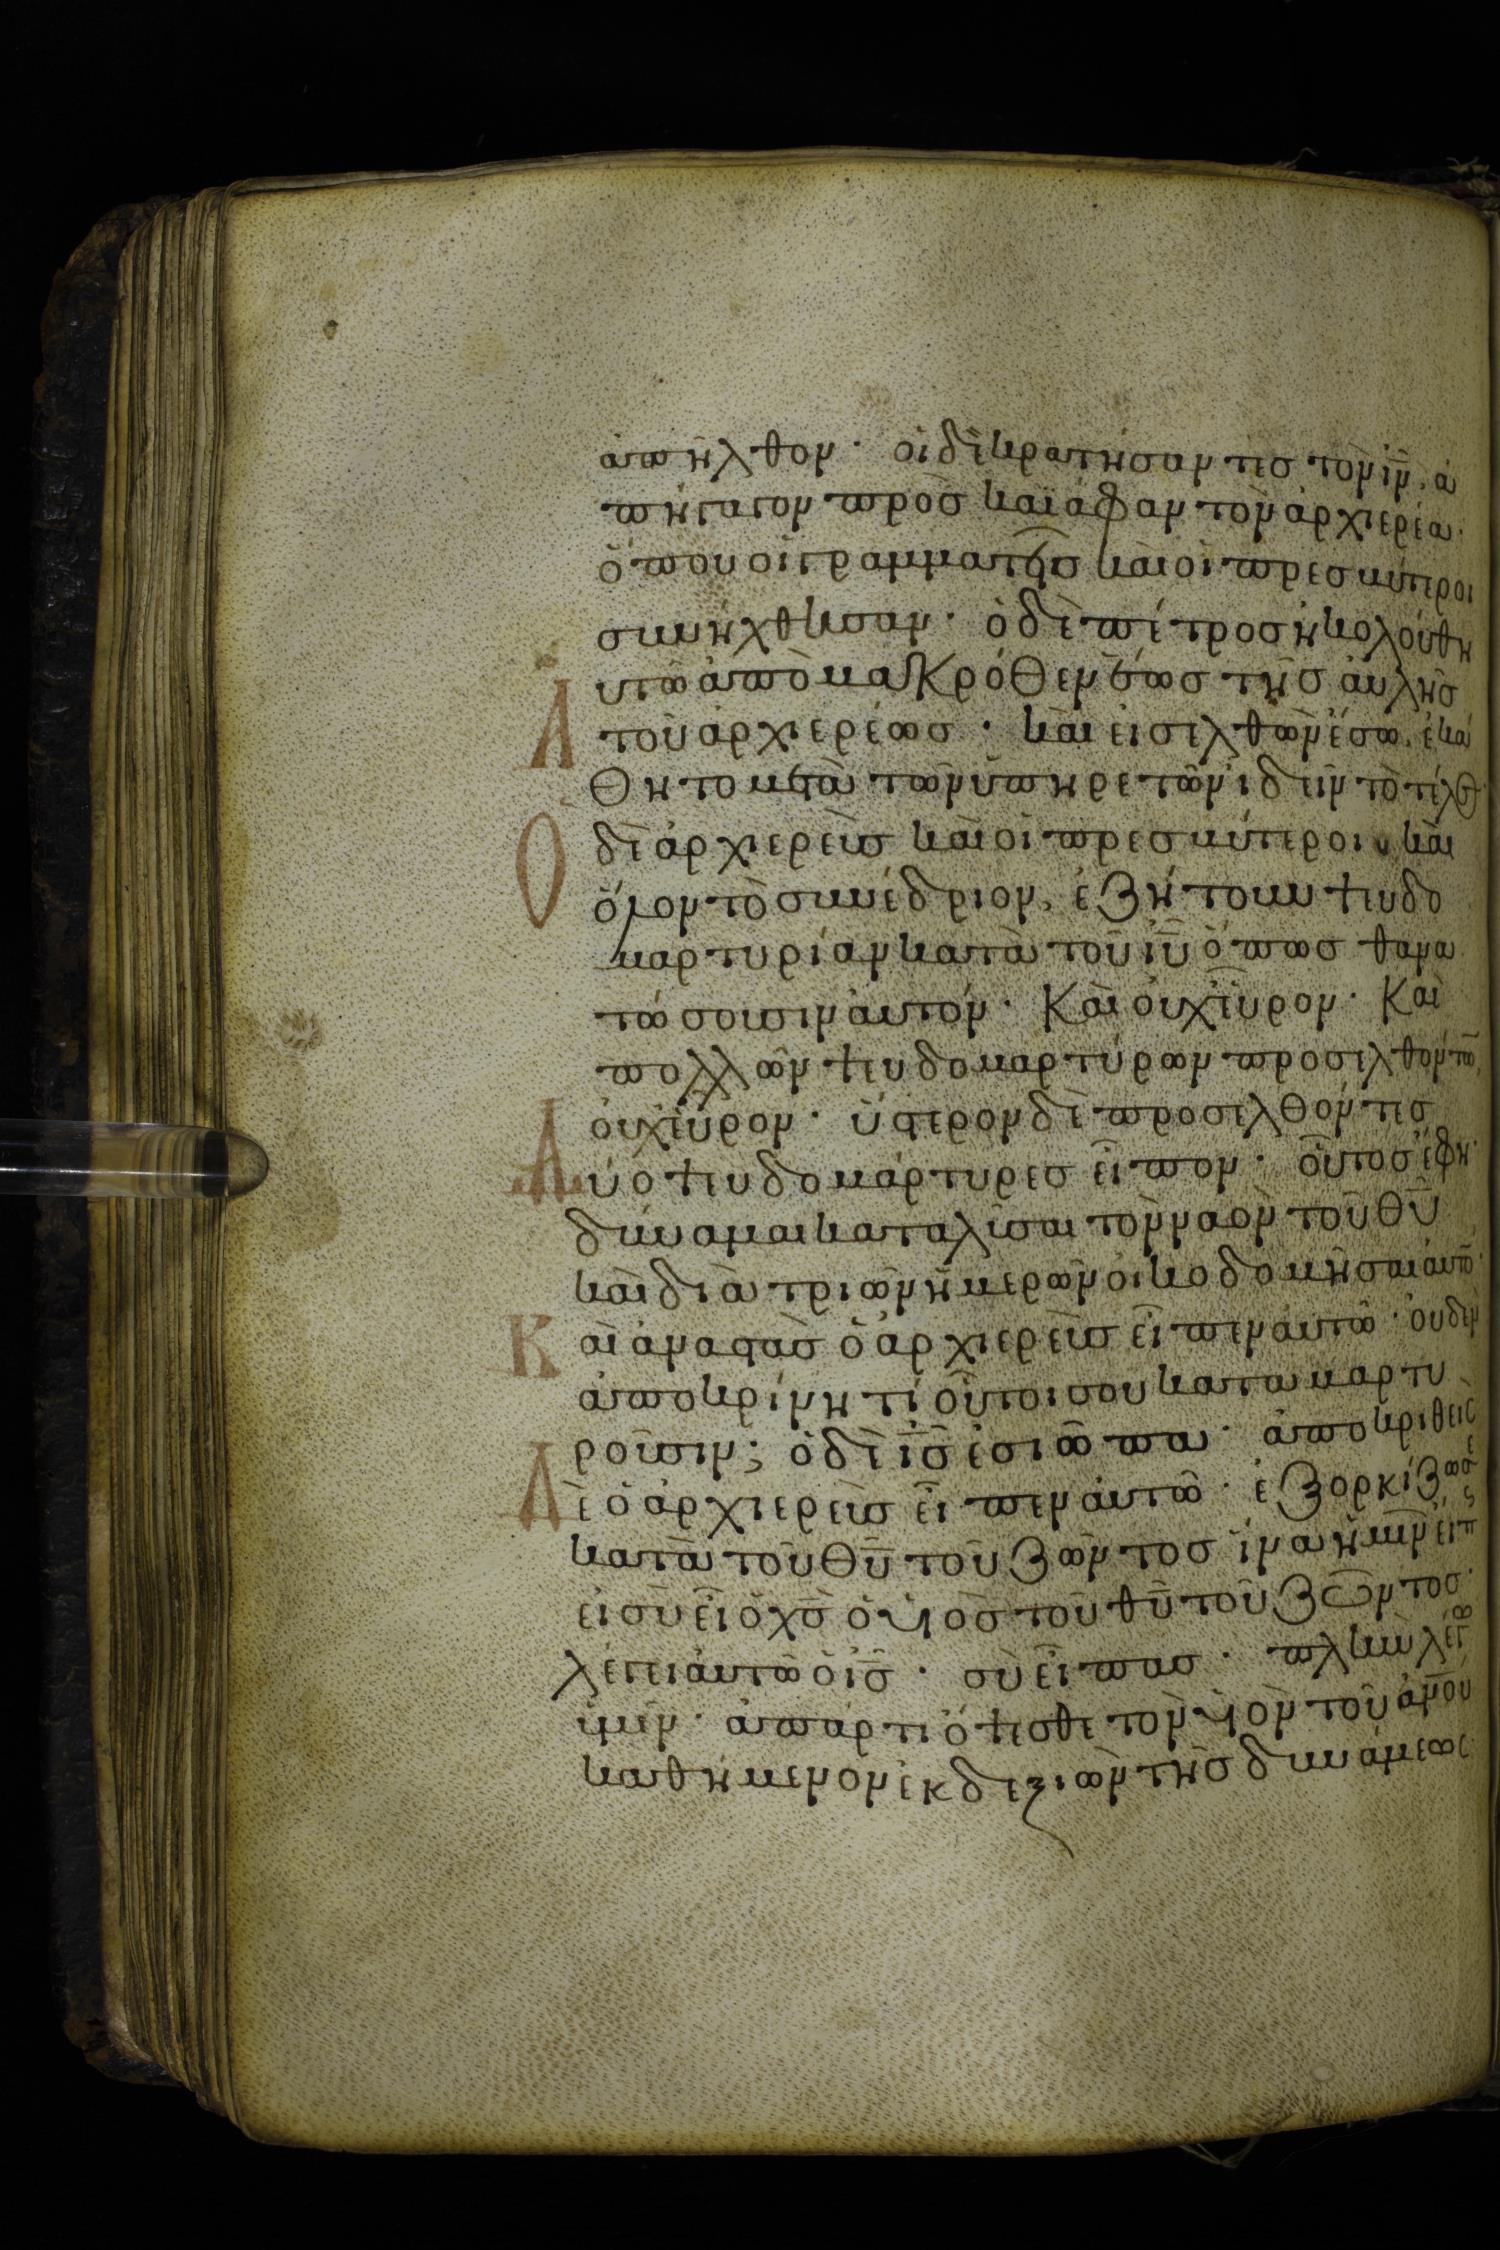 ἀπῆλθον· οἱ δὲ κρατήσαντες τὸν ιν̅· ἀ
πήγαγον πρὸς καϊάφαν τὸν ἀρχιερέα·
ὅπου οἱ γραμματεῖς καὶ οἱ πρεσβύτεροι
συνήχθησαν· ὁ δὲ πέτρος ἠκολούθη
Α υτῶ ἀπὸ μακρόθεν ἕως τῆς αὐλῆς
τοῦ ἀρχιερέως· καὶ εἰσελθὼν ἔσω, ἐκά
θητο μετὰ τῶν ὑπηρετῶν ἰδεῖν τὸ τέλο
Ο δὲ ἀρχιερεὺς καὶ οἱ πρεσβύτεροι· καὶ
ὅλον τὸ συνέδριον, ἐζήτουν ψευδο
μαρτυρίαν κατὰ τοῦ ιυ̅ ὅπως θανα
τώσουσιν αὐτόν· Καὶ οὐχ εὗρον· Καὶ
πολλῶν ψευδομαρτύρων προσελθόντω,
οὐχ εὗρον· ὕστερον δὲ προσελθόντες
Δ ύο ψευδομάρτυρες εἶπον· οὗτος ἔφη·
δύναμαι καταλῦσαι τὸν ναὸν τοῦ θυ̅
καὶ διὰ τριῶν ἡμερῶν οἰκοδομῆσαι αὐτὸ
Κ αὶ ἀναστὰς ὁ ἀρχιερεὺς εἶπεν αὐτῶ· οὐδὲν
ἀποκρίνη τί οὗτοι σοῦ καταμαρτυ
ροῦσιν; ὁ δὲ ις̅ ἐσιώπα· ἀποκριθεις
Δ ὲ ὁ ἀρχιερεὺς εἶπεν αὐτῶ· ἐξορκίζω σε
κατὰ τοῦ θυ̅ τοῦ ζῶντος ἵνα ἡμῖν εἴπῃς
εἰ σὺ εἶ ὁ χς̅ ὁ υἱὸς τοῦ θυ̅ τοῦ ζῶντος·
λέγει αὐτῶ ὁ ις̅· σὺ εἶπας· πλὴν λέγω
ὑμῖν· ἀπάρτι ὄψεσθε τὸν υἱὸν τοῦ ανου̅
καθήμενον ἐκ δεξιῶν τῆς δυνάμεως